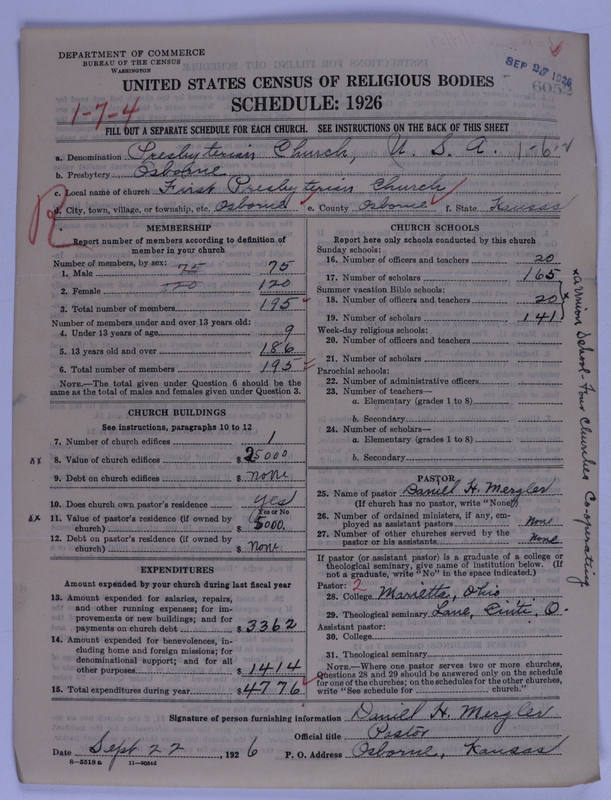 DEPARTMENT OF COMMERCE
BUREAU OF THE CENSUS
WASHINGTON
SEP 27 1926
6052
UNITED STATES CENSUS OF RELIGIOUS BODIES
SCHEDULE: 1926
1-7-4
FILL OUT A SEPARATE SCHEDULE FOR EACH CHURCH. SEE INSTRUCTIONS ON THE BACK OF THIS SHEET
a. Denomination Presbyterian Church, U. S. A. 1-6-2
b. Presbytery Osborne
c. Local name of church First Presbyterian Church
d. City, town, village, or township, etc. Osborne e. County Osborne f. State Kansas
MEMBERSHIP
Report number of members according to definition of
member in your church
Number of members, by sex:
1. Male 75 75
2. Female 120 120
3. Total number of members 195
Number of members under and over 13 years old:
4. Under 13 years of age 9
5. 13 years old and over 186
6. Total number of members 195
NOTE.—The total given under Question 6 should be the
same as the total of males and females given under Question 3.
CHURCH BUILDINGS
See instructions, paragraphs 10 to 12
7. Number of church edifices 1
8. Value of church edifices $ 25000
9. Debt on church edifices $ none
10. Does church own pastor's residence yes
Yes or No
11. Value of pastor's residence (if owned by
church) $ 5000.
12. Debt on pastor's residence (if owned by
church) $ none
EXPENDITURES
Amount expended by your church during last fiscal year
13. Amount expended for salaries, repairs,
and other running expenses; for im-
provements or new buildings; and for
payments on church debt $ 3362
14. Amount expended for benevolences, in-
cluding home and foreign missions; for
denominational support; and for all
other purposes $ 1414
15. Total expenditures during year $ 4776
CHURCH SCHOOLS
Report here only schools conducted by this church
Sunday schools:
16. Number of officers and teachers 20
17. Number of scholars 165
Summer vacation Bible schools:
18. Number of officers and teachers 20
19. Number of scholars 141
x a Union School - Four Churches Cooperating
Week-day religious schools:
20. Number of officers and teachers
21. Number of scholars
Parochial schools:
22. Number of administrative officers
23. Number of teachers—
a. Elementary (grades 1 to 8)
b. Secondary
24. Number of scholars—
a. Elementary (grades 1 to 8)
b. Secondary
PASTOR
25. Name of pastor Daniel H. Mergler
(If church has no pastor, write "None")
26. Number of ordained ministers, if any, em-
ployed as assistant pastors None
27. Number of other churches served by the
pastor or his assistants None
If pastor (or assistant pastor) is a graduate of a college or
theological seminary, give name of institution below. (If
not a graduate, write "No" in the space indicated.)
Pastor: 2
28. College Marietta, Ohio
29. Theological seminary Lane, Cinti, O.
Assistant pastor:
30. College
31. Theological seminary
NOTE.—Where one pastor serves two or more churches,
Questions 28 and 29 should be answered only on the schedule
for one of the churches; on the schedules for the other churches,
write "See schedule for church."
Signature of person furnishing information Daniel H. Mergler
Official title Pastor
Date Sept 22, 1926 P. O. Address Osborne, Kansas
8—5518a